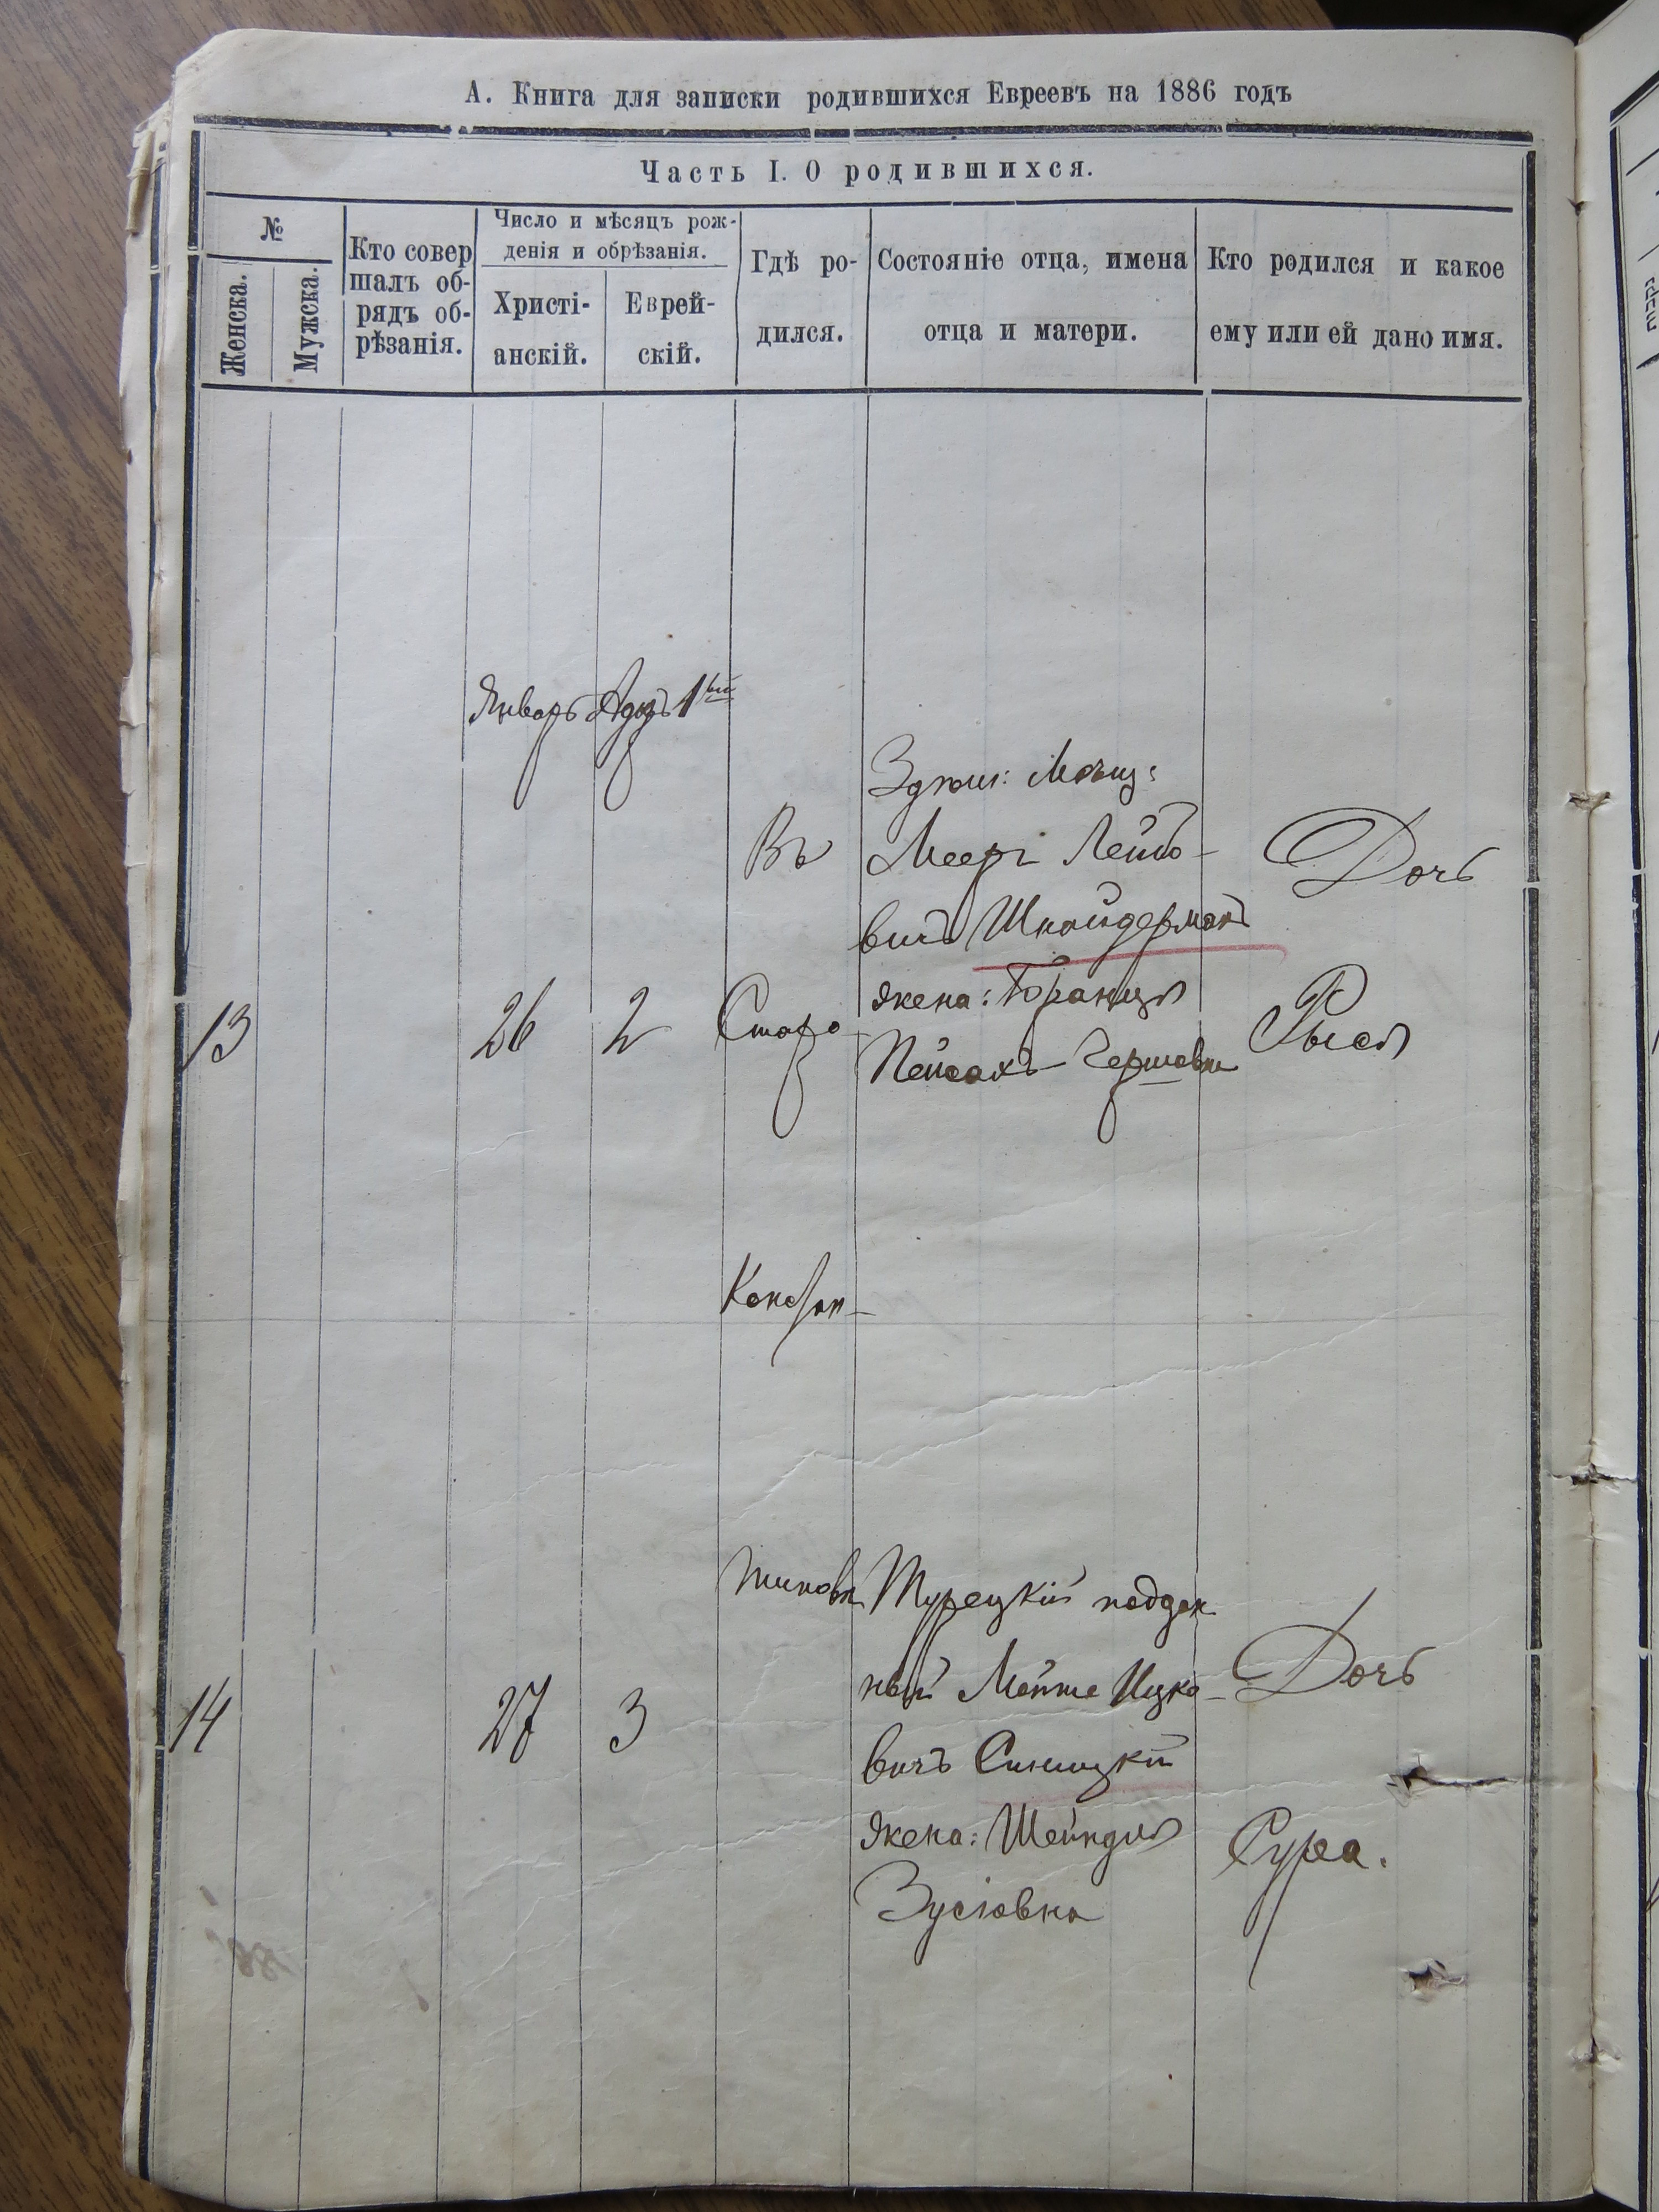 А. Книга для записки родившихся Евреевъ на 1886 годъ
Часть I. О родившихся.
№
Женска.
Мужска.
Кто совер
шалъ об-
рядъ об-
рѣзанія.
Число и мѣсяцъ рож-
денія и обрѣзанія.
Христі-
анскій.
Еврей-
скій.
Гдѣ ро-
дился.
Состояніе отца, имена
отца и матери.
Кто родился и какое
ему или ей дано имя.
Январь Адаръ 1ый
13
26
2
Въ
Старо
Константиновѣ
Мееръ Лейбо-
вичъ Шнайдерманъ
жена: Бранця
Пейсахъ-Гершовна
Дочь
Рыся
14
27
3
Турецкій поддан
ный Мошко Ицко-
вичъ Синицкій
жена: Шейндля
Зусіовна
Дочь
Сура.